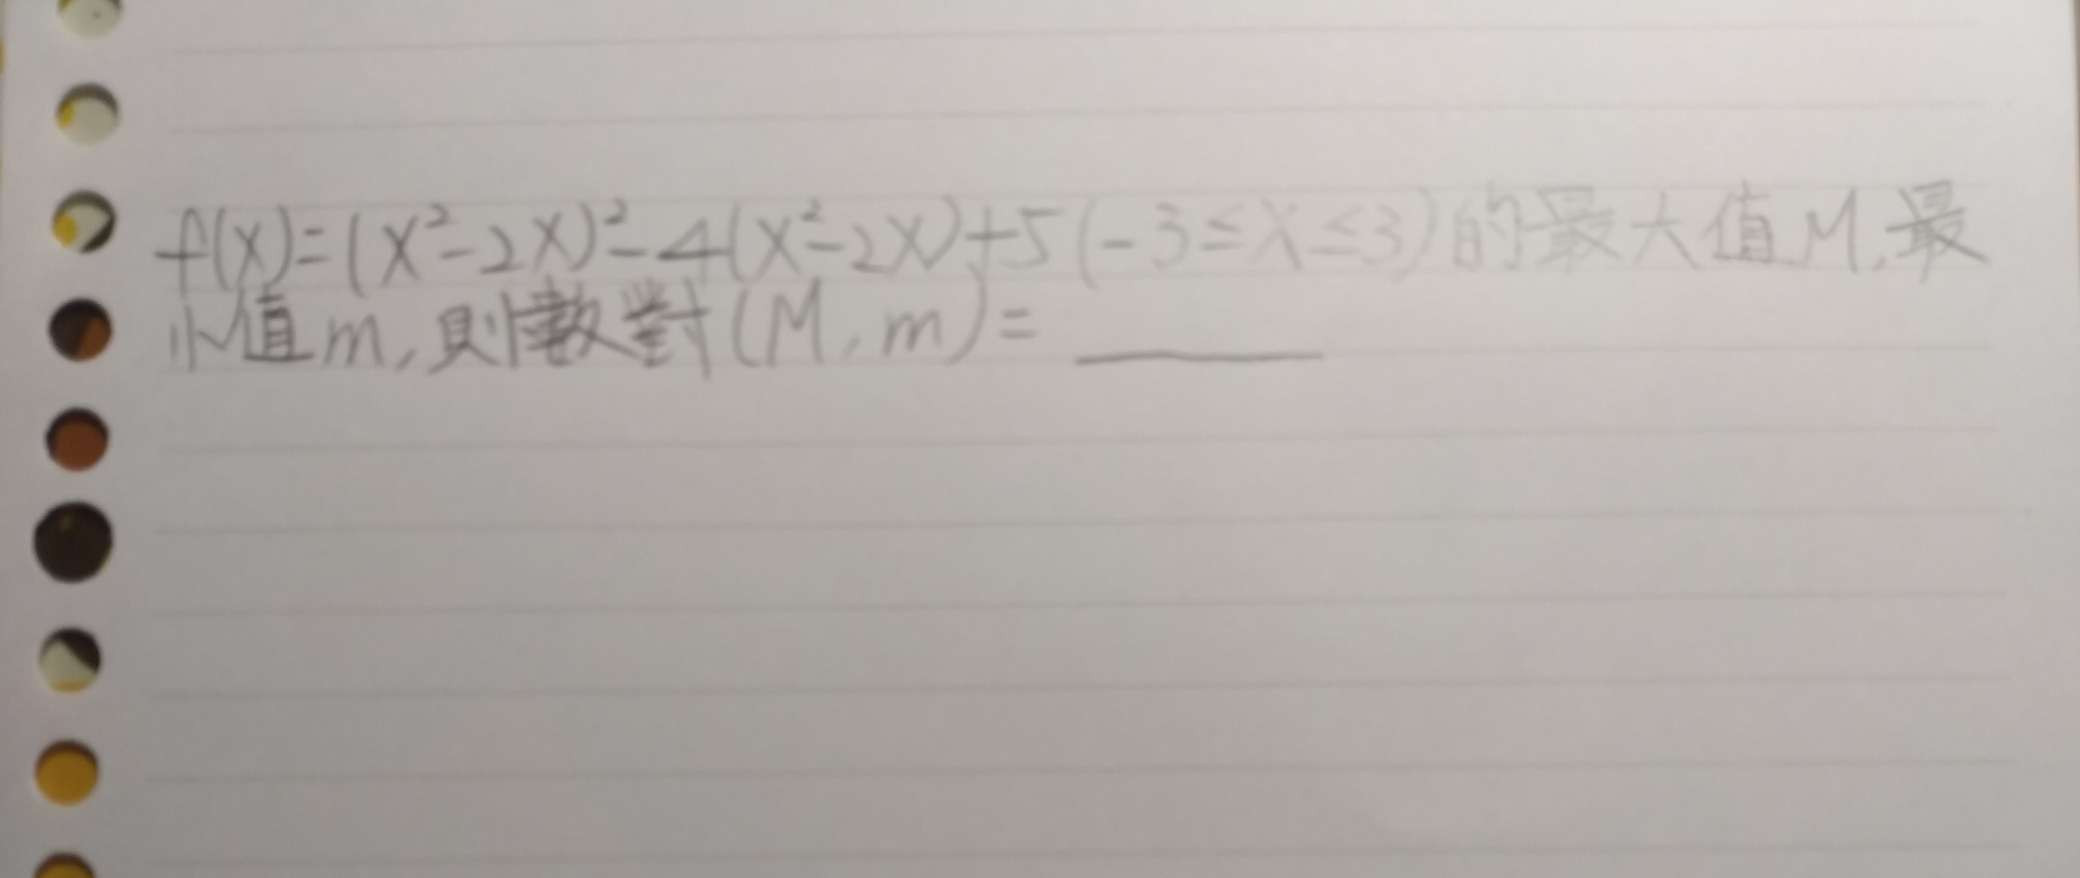 f(x)=(x²-2x)²-4(x²-2x)+5(-3≤x≤3)的最大值M,最
小值m,則數對(M,m)=